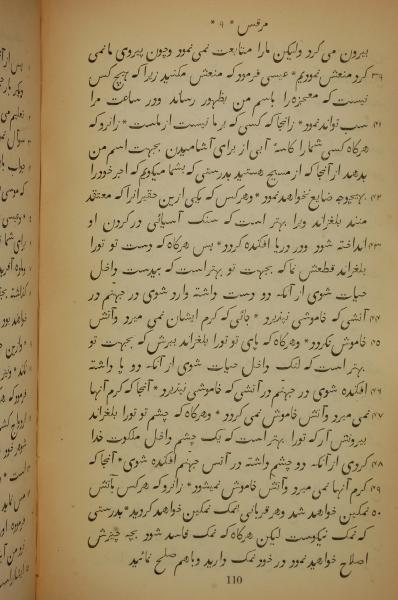 مرقس * ۹ *
بیرون می کرد ولیکن مارا متابعت نمی نمود وچون پیروی ما نمی
۳۹ کرد منعش نمودیم * عیسی فرمود که منعش مکنید زیرا که هیچ کس
نیست که معجزه را باسم من بظهور رساند ودر ساعت مرا
۴۱ سب تواند نمود * زانجا که کسی که بر ما نیست از ماست * زانرو که
هرگاه کسی شمارا کاسهٔ آبی از برای آشامیدن بجهت اسم من
بدهد از آنجا که از مسیح هستید بدرستی که بشما میگویم که اجر خودرا
۴۲ بهیچوجه ضایع نخواهد نمود * وهر کس که یکی ازین حقیرانرا که معتقد
منند بلغزاند ورا بهتر است که سنک آسیائی در کردن او
۴۳ انداخته شود ودر دریا افکنده کردد * پس هرگاه که دست تو تورا
بلغزاند قطعش نما که بجهت تو بهتر است که بیدست داخل
حیات شوی از آنکه دو دست داشته وارد شوی در جهنم در
۴۴ آتشی که خاموشی نپذیرد * جائی که کرم ایشان نمی میرد وآتش
۴۵ خاموش نکردد * وهرگاه که پای تو تورا بلغزاند ببرش که بجهت تو
بهتر است که لنک داخل حیات شوی از آنکه دو پا داشته
۴۶ افکنده شوی در جهنم در آتشی که خاموشی نپذیرد * آنجا که کرم آنها
۴۷ نمی میرد وآتش خاموش نمی کردد * وهرگاه که چشم تو تورا بلغزاند
بیرونش آر که تورا بهتر است که یک چشم داخل ملکوت خدا
۴۸ کردی از آنکه دو چشم داشته در آتس جهنم افکنده شوی * آنجا که
۴۹ کرم آنها نمی میرد وآتش خاموش نمیشود * زانرو که هر کس بآتش
۵۰ نمکین خواهد شد وهر قربانی بنمک نمکین خواهد کردید * بدرستی
که نمک نیکوست لیکن هرگاه که نمک فاسد شود بچه چیزش
اصلاح خواهید نمود در خود نمک دارید وباهم صلح نمائید
110